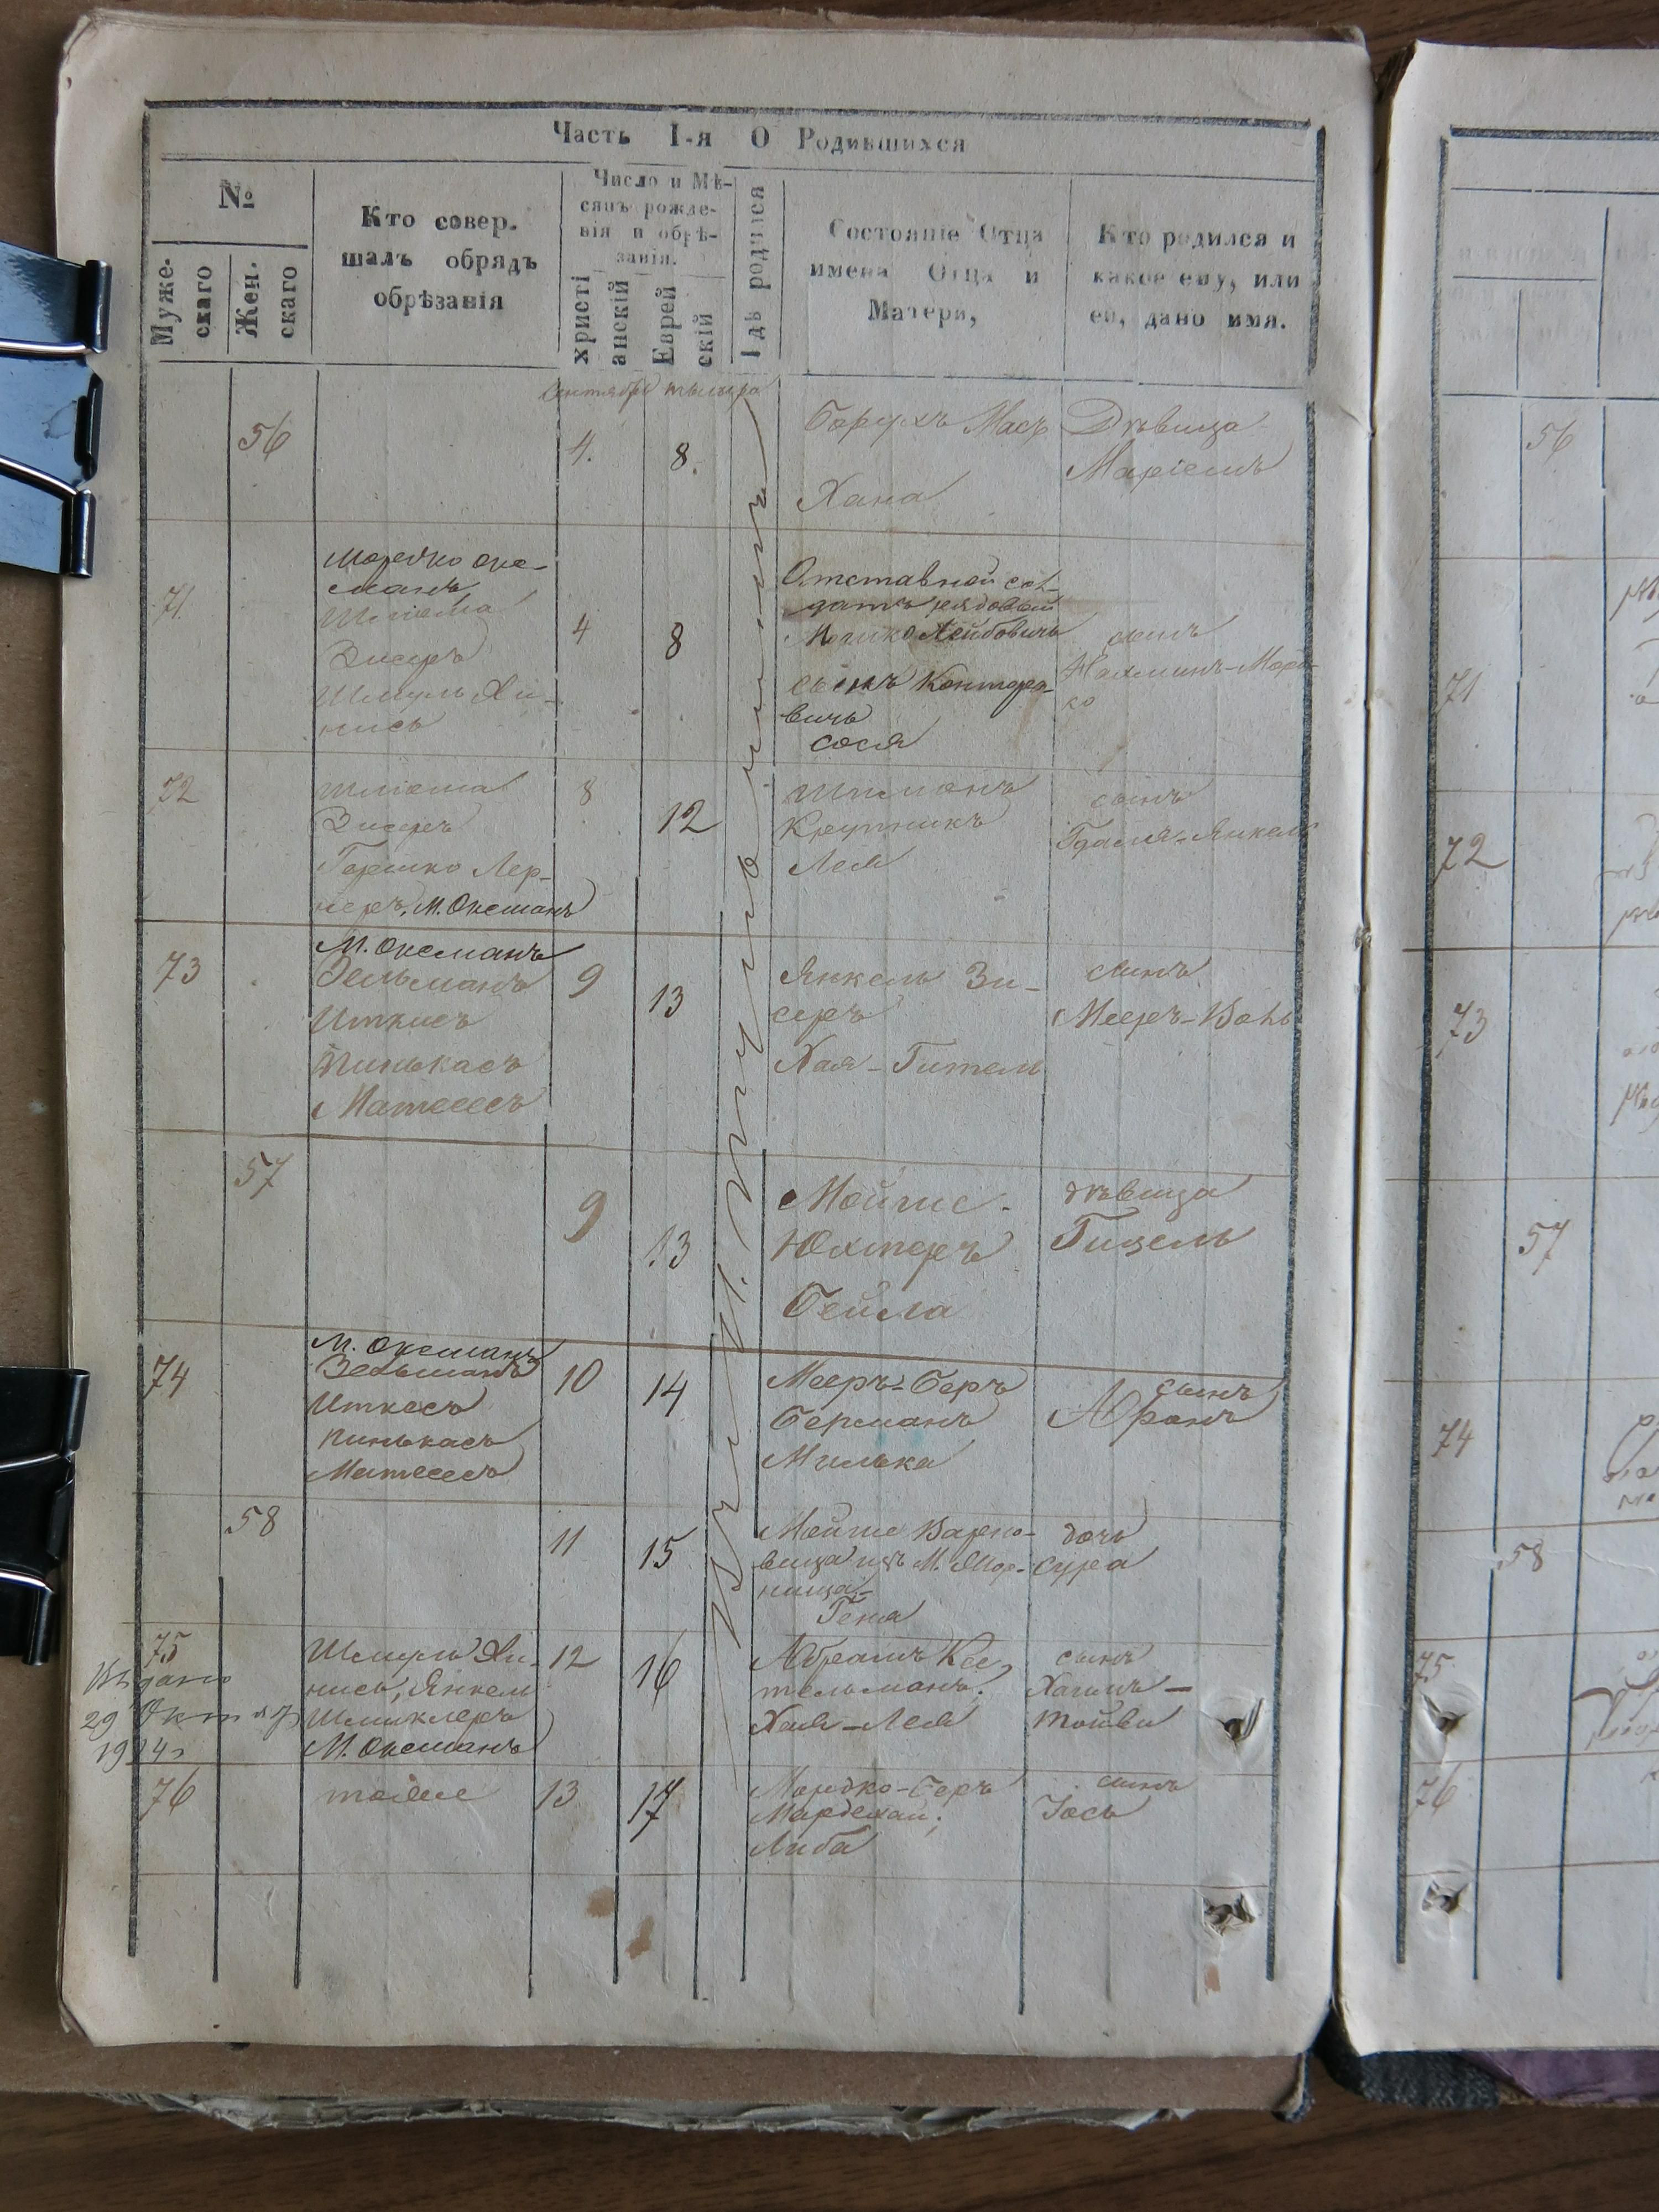 Часть I-я О Родившихся
№
Муже-
скаго
Жен.
скаго
Кто совер-
шалъ обрядъ
обрѣзанія
Число и Мѣ-
сяцъ рожде-
нія и обрѣ-
занія.
христі
анскій
Еврей
скій
Гдѣ родился
Состояніе Отца
имена Отца и
Матери,
Кто родился и
какое ему, или
ей, дано имя.
Сентября
56
4.
8.
Борухъ Масъ
Хана
Дѣвица
Маріемъ
71
Мордко Окс-
манъ
Шліома
Зисеръ
Шмуль Ял-
нисъ
4
8
Отставной сол-
датъ рядовой
Мошко Лейбовичъ
сынъ Конторо-
вичъ
Сося
сынъ
Нахманъ-Морд-
ко
72
Шліома
Зисеръ
Гершко Лер-
неръ, М. Оксманъ
8
12
Шимонъ
Крутникъ
Лея
сынъ
Гдаля-Янкель
73
М. Оксманъ
Зельманъ
Иткисъ
Пинькасъ
Матеесъ
9
13
Янкель Зи-
серъ
Хая-Гитель
сынъ
Мееръ-Волъ
57
9
13
Мойше
Юхтеръ
Бейла
дѣвица
Гицель
74
М. Оксманъ
Зельманъ
Иткесъ
Пинькасъ
Матеесъ
10
14
Мееръ-Беръ
Берманъ
Милька
сынъ
Аронъ
58
11
15
Мойше
изъ М.
Гена
дочь
Сура
75
Выдано
29 Окт
1924
Янкель
Шмуклеръ
М. Оксманъ
12
16
Абрамъ Кес-
тельманъ.
Хая-Лея
сынъ
Хаимъ-
Тойви
76
тоже
13
17
Мордко-Беръ
Мордехай;
Либа
сынъ
Іось
56
71
72
73
57
74
58
75
76